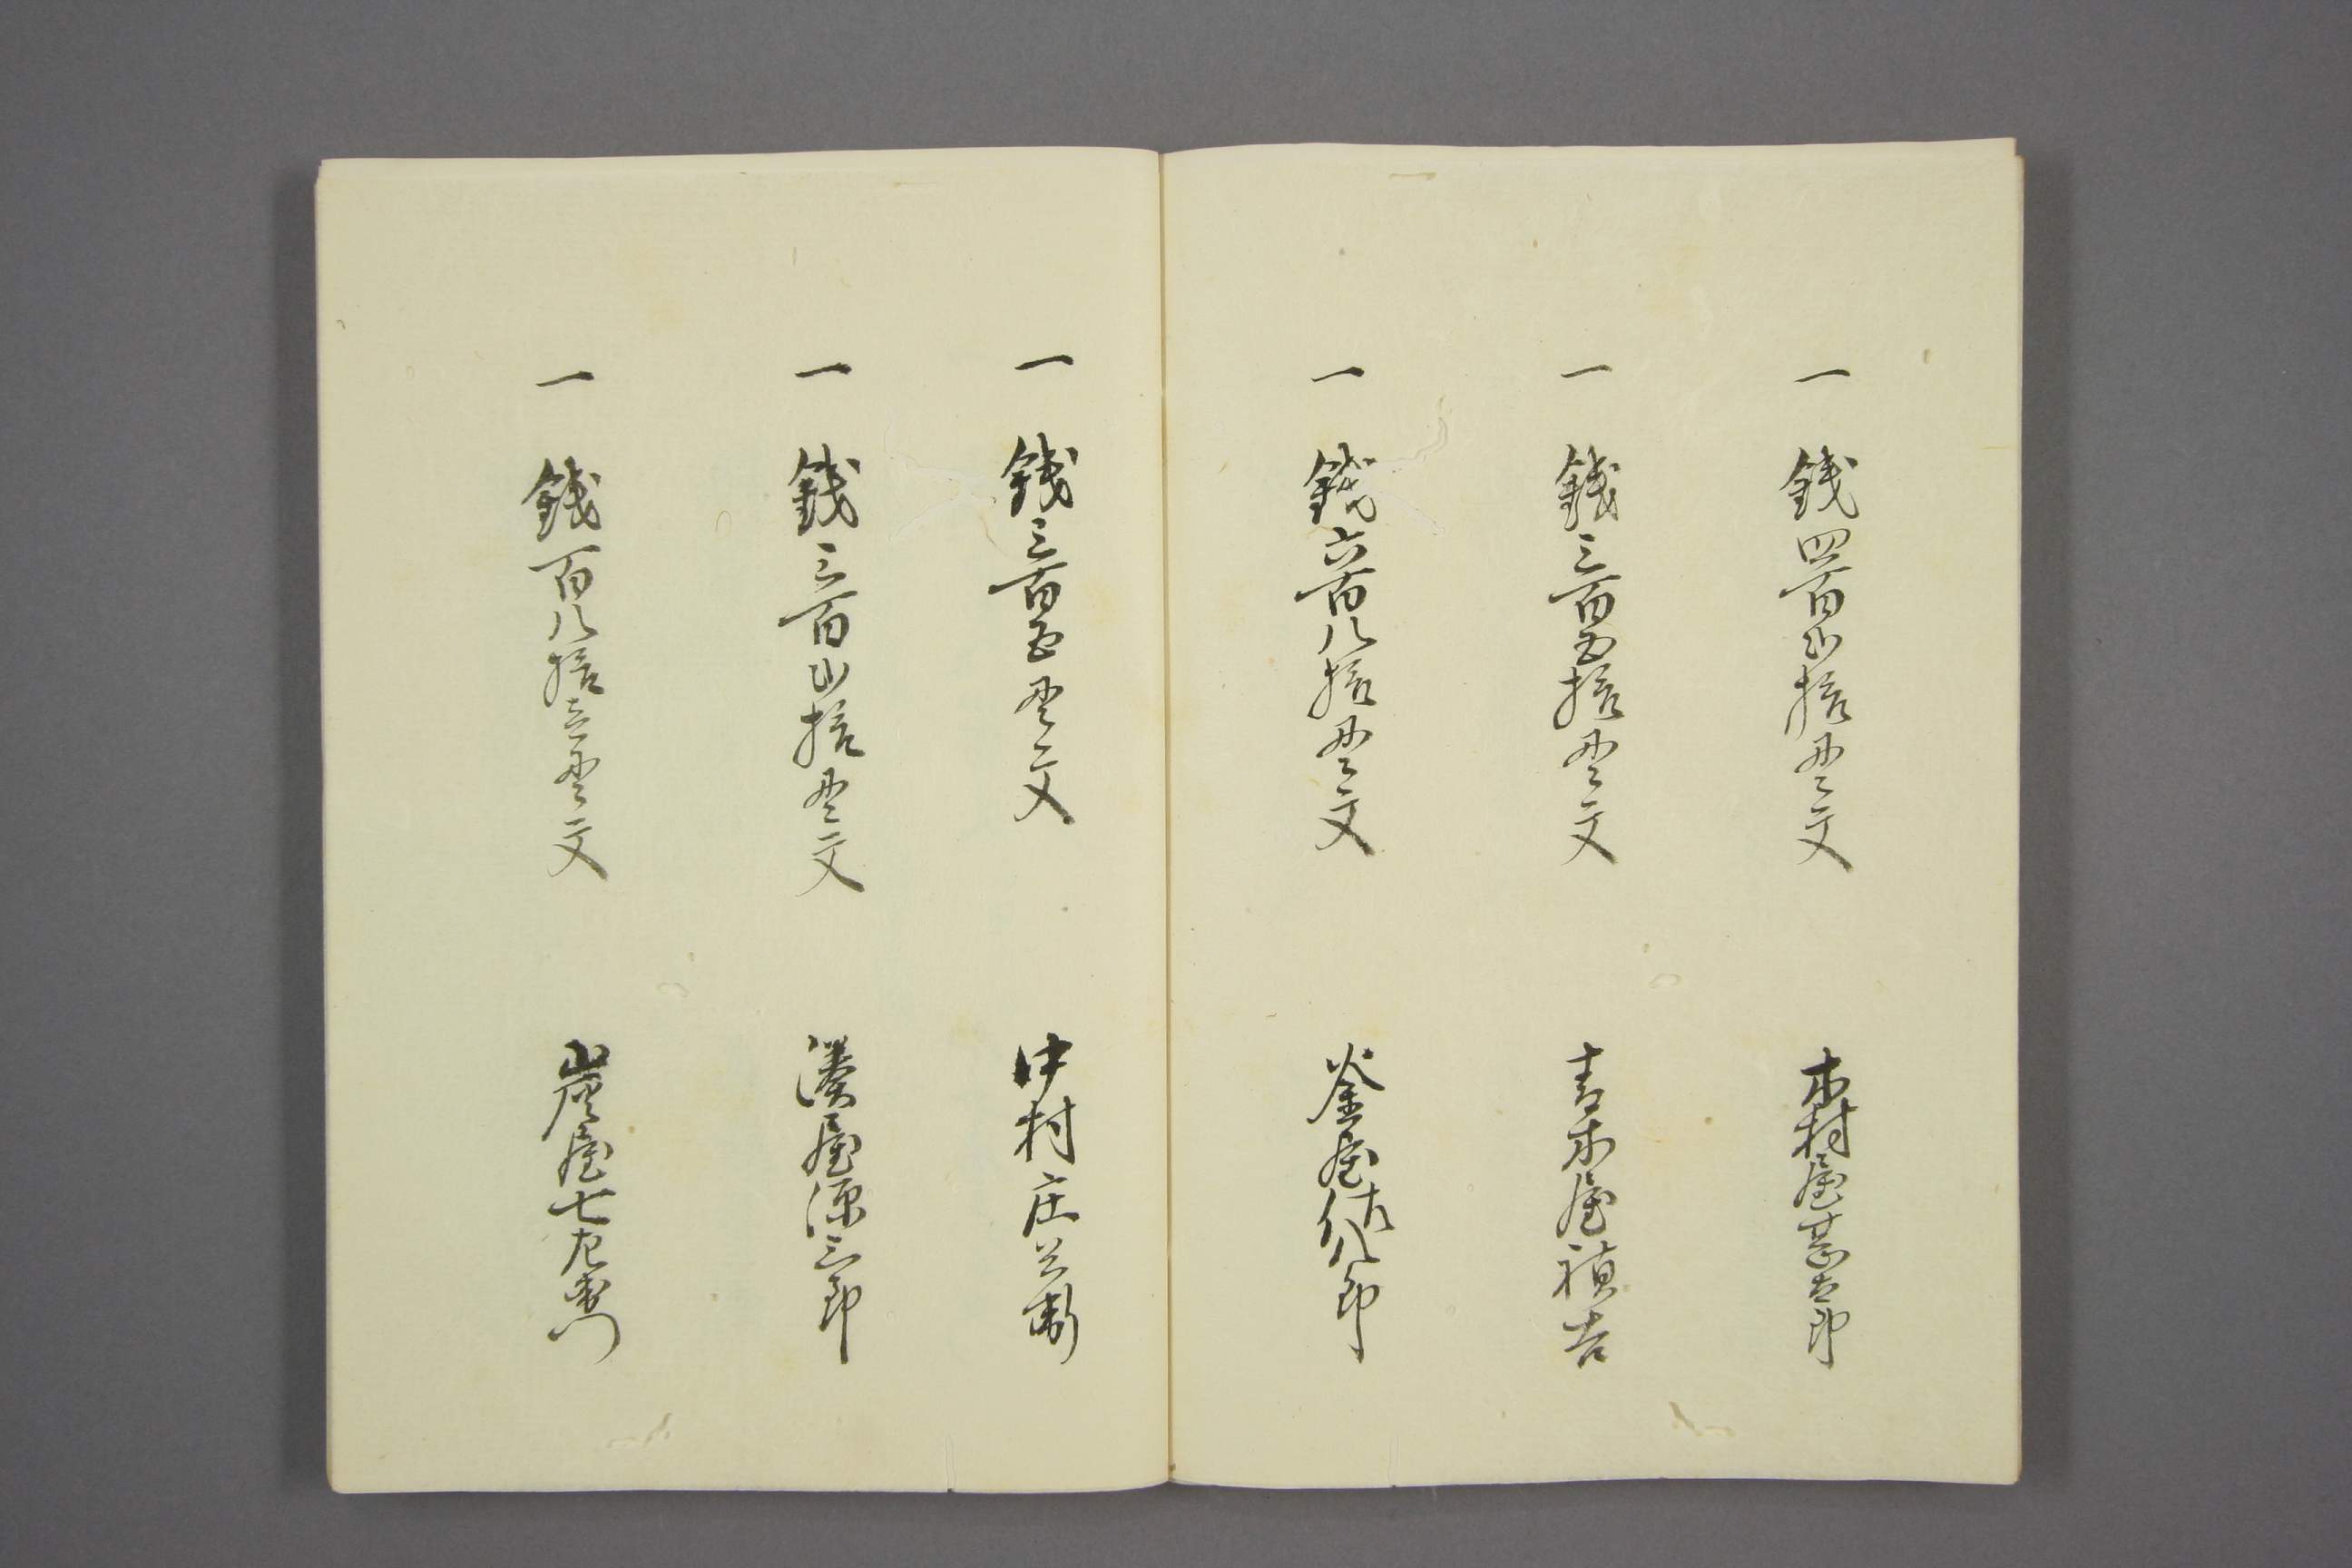 一 銭四百拾貫文 木村屋甚太郎
一 銭三百五拾貫文 青木屋禎吉
一 銭六百八拾貫文 釜屋佐八郎
一 銭三百五貫文 中村庄兵衛
一 銭三百拾貫文 湊屋源三郎
一 銭百八拾貫文 炭屋七左衛門